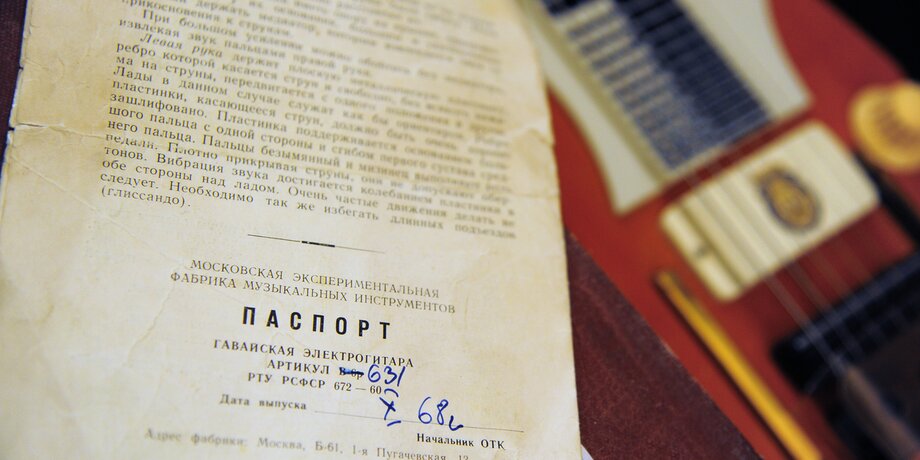 держать медиатор, которым
прикосновения к струнам.
При большом усилении можно обойтись без медиатора,
извлекая звук пальцами правой руки.
Левая рука держит плоскую металлическую пластинку,
ребро которой касается струн и свободно, без всякого
ма на струны, передвигается с одного положения в
Лады в данном случае служат как бы ориентиром. Ребро
пластинки, касающееся струн, должно быть очень
зашлифовано. Пластинка поддерживается основанием
шого пальца с одной стороны и сгибом первого сустава сред-
него пальца. Пальцы безымянный и мизинец выполняют роль
педали. Плотно прикрывая струны, они не допускают обер-
тонов. Вибрация звука достигается колебанием пластинки в
обе стороны над ладом. Очень частые движения делать не
следует. Необходимо так же избегать длинных подъездов
(глиссандо).
МОСКОВСКАЯ ЭКСПЕРИМЕНТАЛЬНАЯ
ФАБРИКА МУЗЫКАЛЬНЫХ ИНСТРУМЕНТОВ
ПАСПОРТ
ГАВАЙСКАЯ ЭЛЕКТРОГИТАРА
АРТИКУЛ В-6р 631
РТУ РСФСР 672—60
Дата выпуска X 68г
Начальник ОТК
Адрес фабрики: Москва, Б-61, 1-я Пугачевская, 12